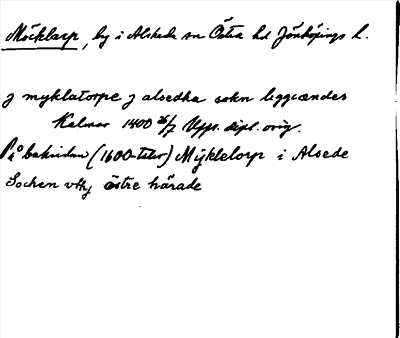 Möcklarp, by i Alsheda sn Östra hd Jönköpings l.
j myklatorpe j alsedha sokn liggiændes
Kalmar 1400 26/7 Upps. dipl. orig.
På baksidan (1600-talet) Mÿkletorp i Alsede
Sochen vthj östre härade